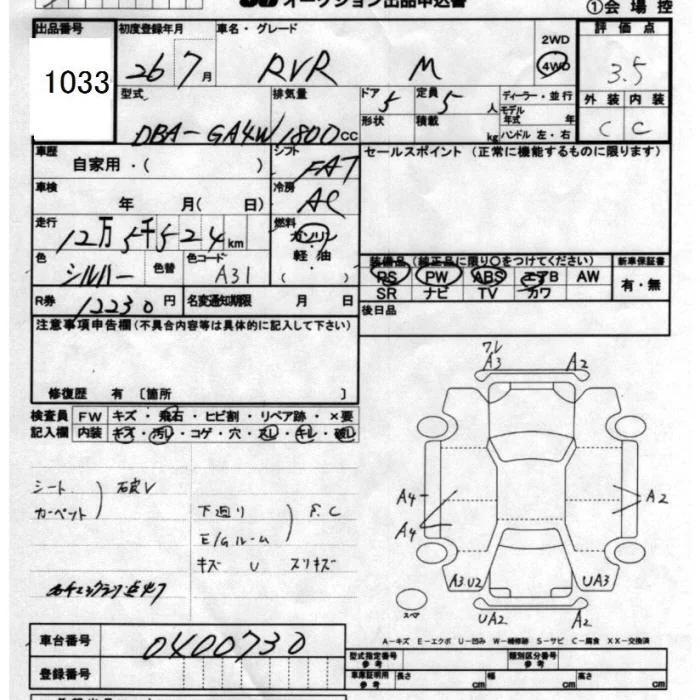 オークション出品申込書
①会場控
出品番号 初度登録年月 車名・グレード 評価点
1033 26 7月 RVR M 2WD 4WD 3.5
型式 排気量 ドア 5 定員 5人 ディーラー・並行 外装 内装
DBA-GA4W 1800cc 形状 積載 kg モデル年式 年 C C
ハンドル 左・右
車歴 シフト セールスポイント (正常に機能するものに限ります)
自家用・( ) FAT
車検 冷房
年 月( 日) AC
走行 燃料
12万5千524km ガソリン
軽・油
( )
色 色替 色コード 装備品(純正品に限り○をつけてください) 新車保証書
シルバー A31 PS PW ABS エアB AW 有・無
R券 12230円 名変通知期限 月 日 SR ナビ TV カワ
後日品
注意事項申告欄(不具合内容等は具体的に記入して下さい)
修復歴 有 〔箇所 〕
検査員 FW キズ・飛石・ヒビ割・リペア跡・×要
記入欄 内装 キズ・汚レ・コゲ・穴・スレ・キレ・破レ
ワレ
A3 A2
シート
カーペット
下廻り
E/gルーム
F.C
キズ U スリキズ
A4 A2
A4
A3U2 UA3
スペア UA2 A2
A-キズ E-エクボ U-凹み W-補修跡 S-サビ C-腐食 XX-交換済
車台番号 0400730
登録番号
型式指定番号 参考 類別区分番号 参考
車庫証明用 参考 長さ cm 幅 cm 高さ cm